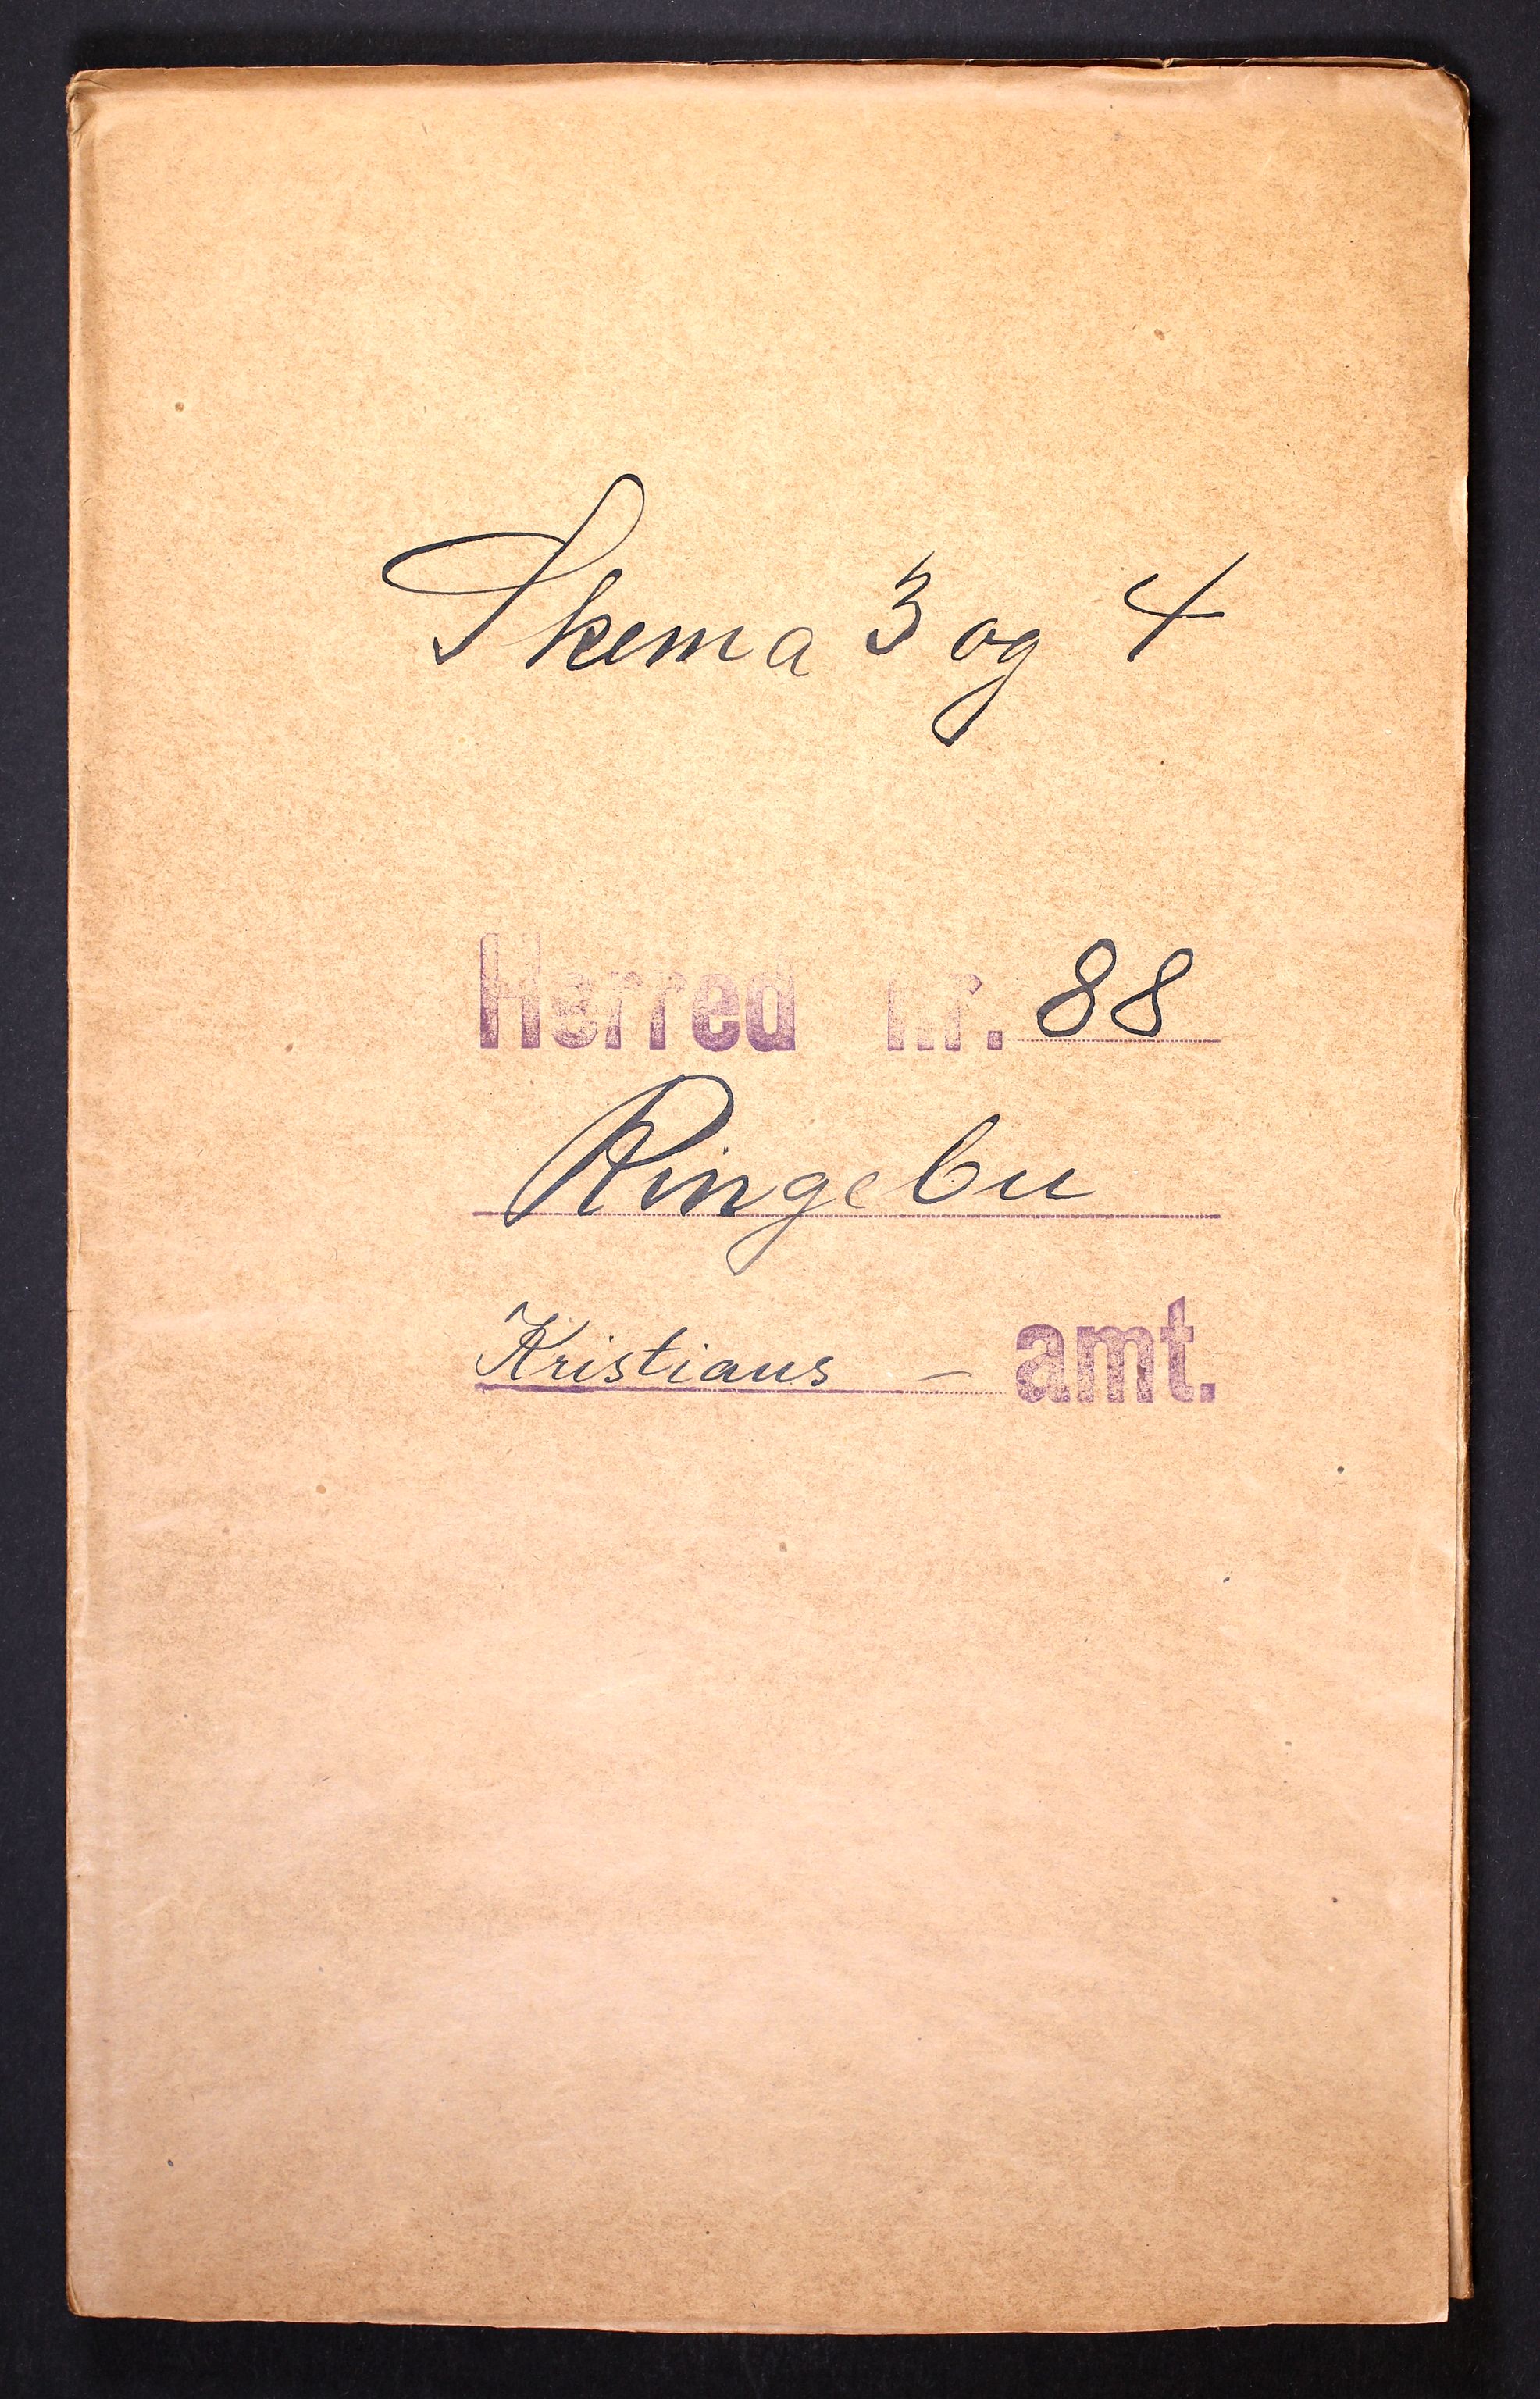 Skema 3 og 4
Herred nr. 88
Ringebu
Kristians - amt.